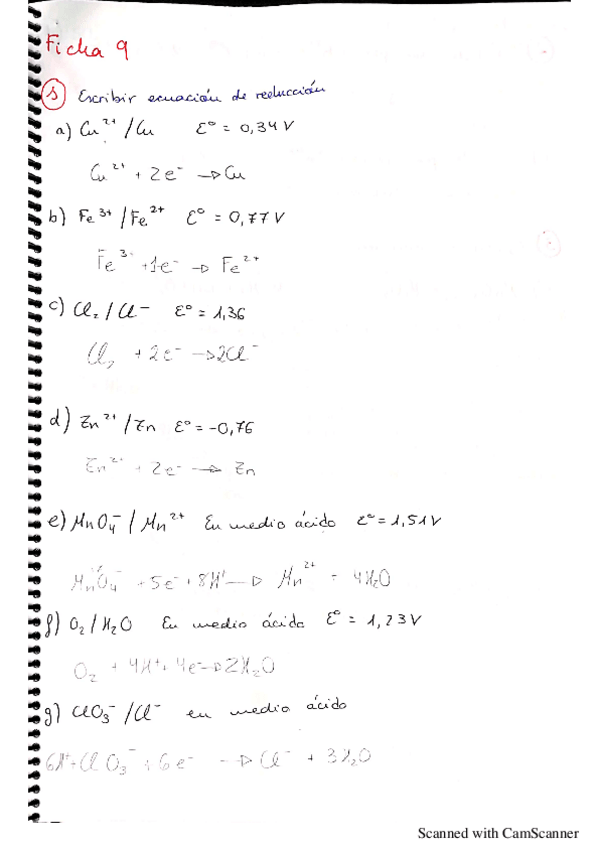 Ficha 9
1 Escribir ecuación de reducción
a) Cu²⁺/Cu Ɛ° = 0,34 V
Cu²⁺ + 2e⁻ → Cu
b) Fe³⁺/Fe²⁺ Ɛ° = 0,77 V
Fe³⁺ + 1e⁻ → Fe²⁺
c) Cl₂/Cl⁻ Ɛ° = 1,36
Cl₂ + 2e⁻ → 2Cl⁻
d) Zn²⁺/Zn Ɛ° = -0,76
Zn²⁺ + 2e⁻ → Zn
e) MnO₄⁻/Mn²⁺ En medio ácido Ɛ° = 1,51 V
MnO₄⁻ + 5e⁻ + 8H⁺ → Mn²⁺ = 4H₂O
f) O₂/H₂O En medio ácido Ɛ° = 1,23 V
O₂ + 4H⁺ + 4e⁻ → 2H₂O
g) ClO₃⁻/Cl⁻ en medio ácido
6H⁺ + ClO₃⁻ + 6e⁻ → Cl⁻ + 3H₂O
Scanned with CamScanner